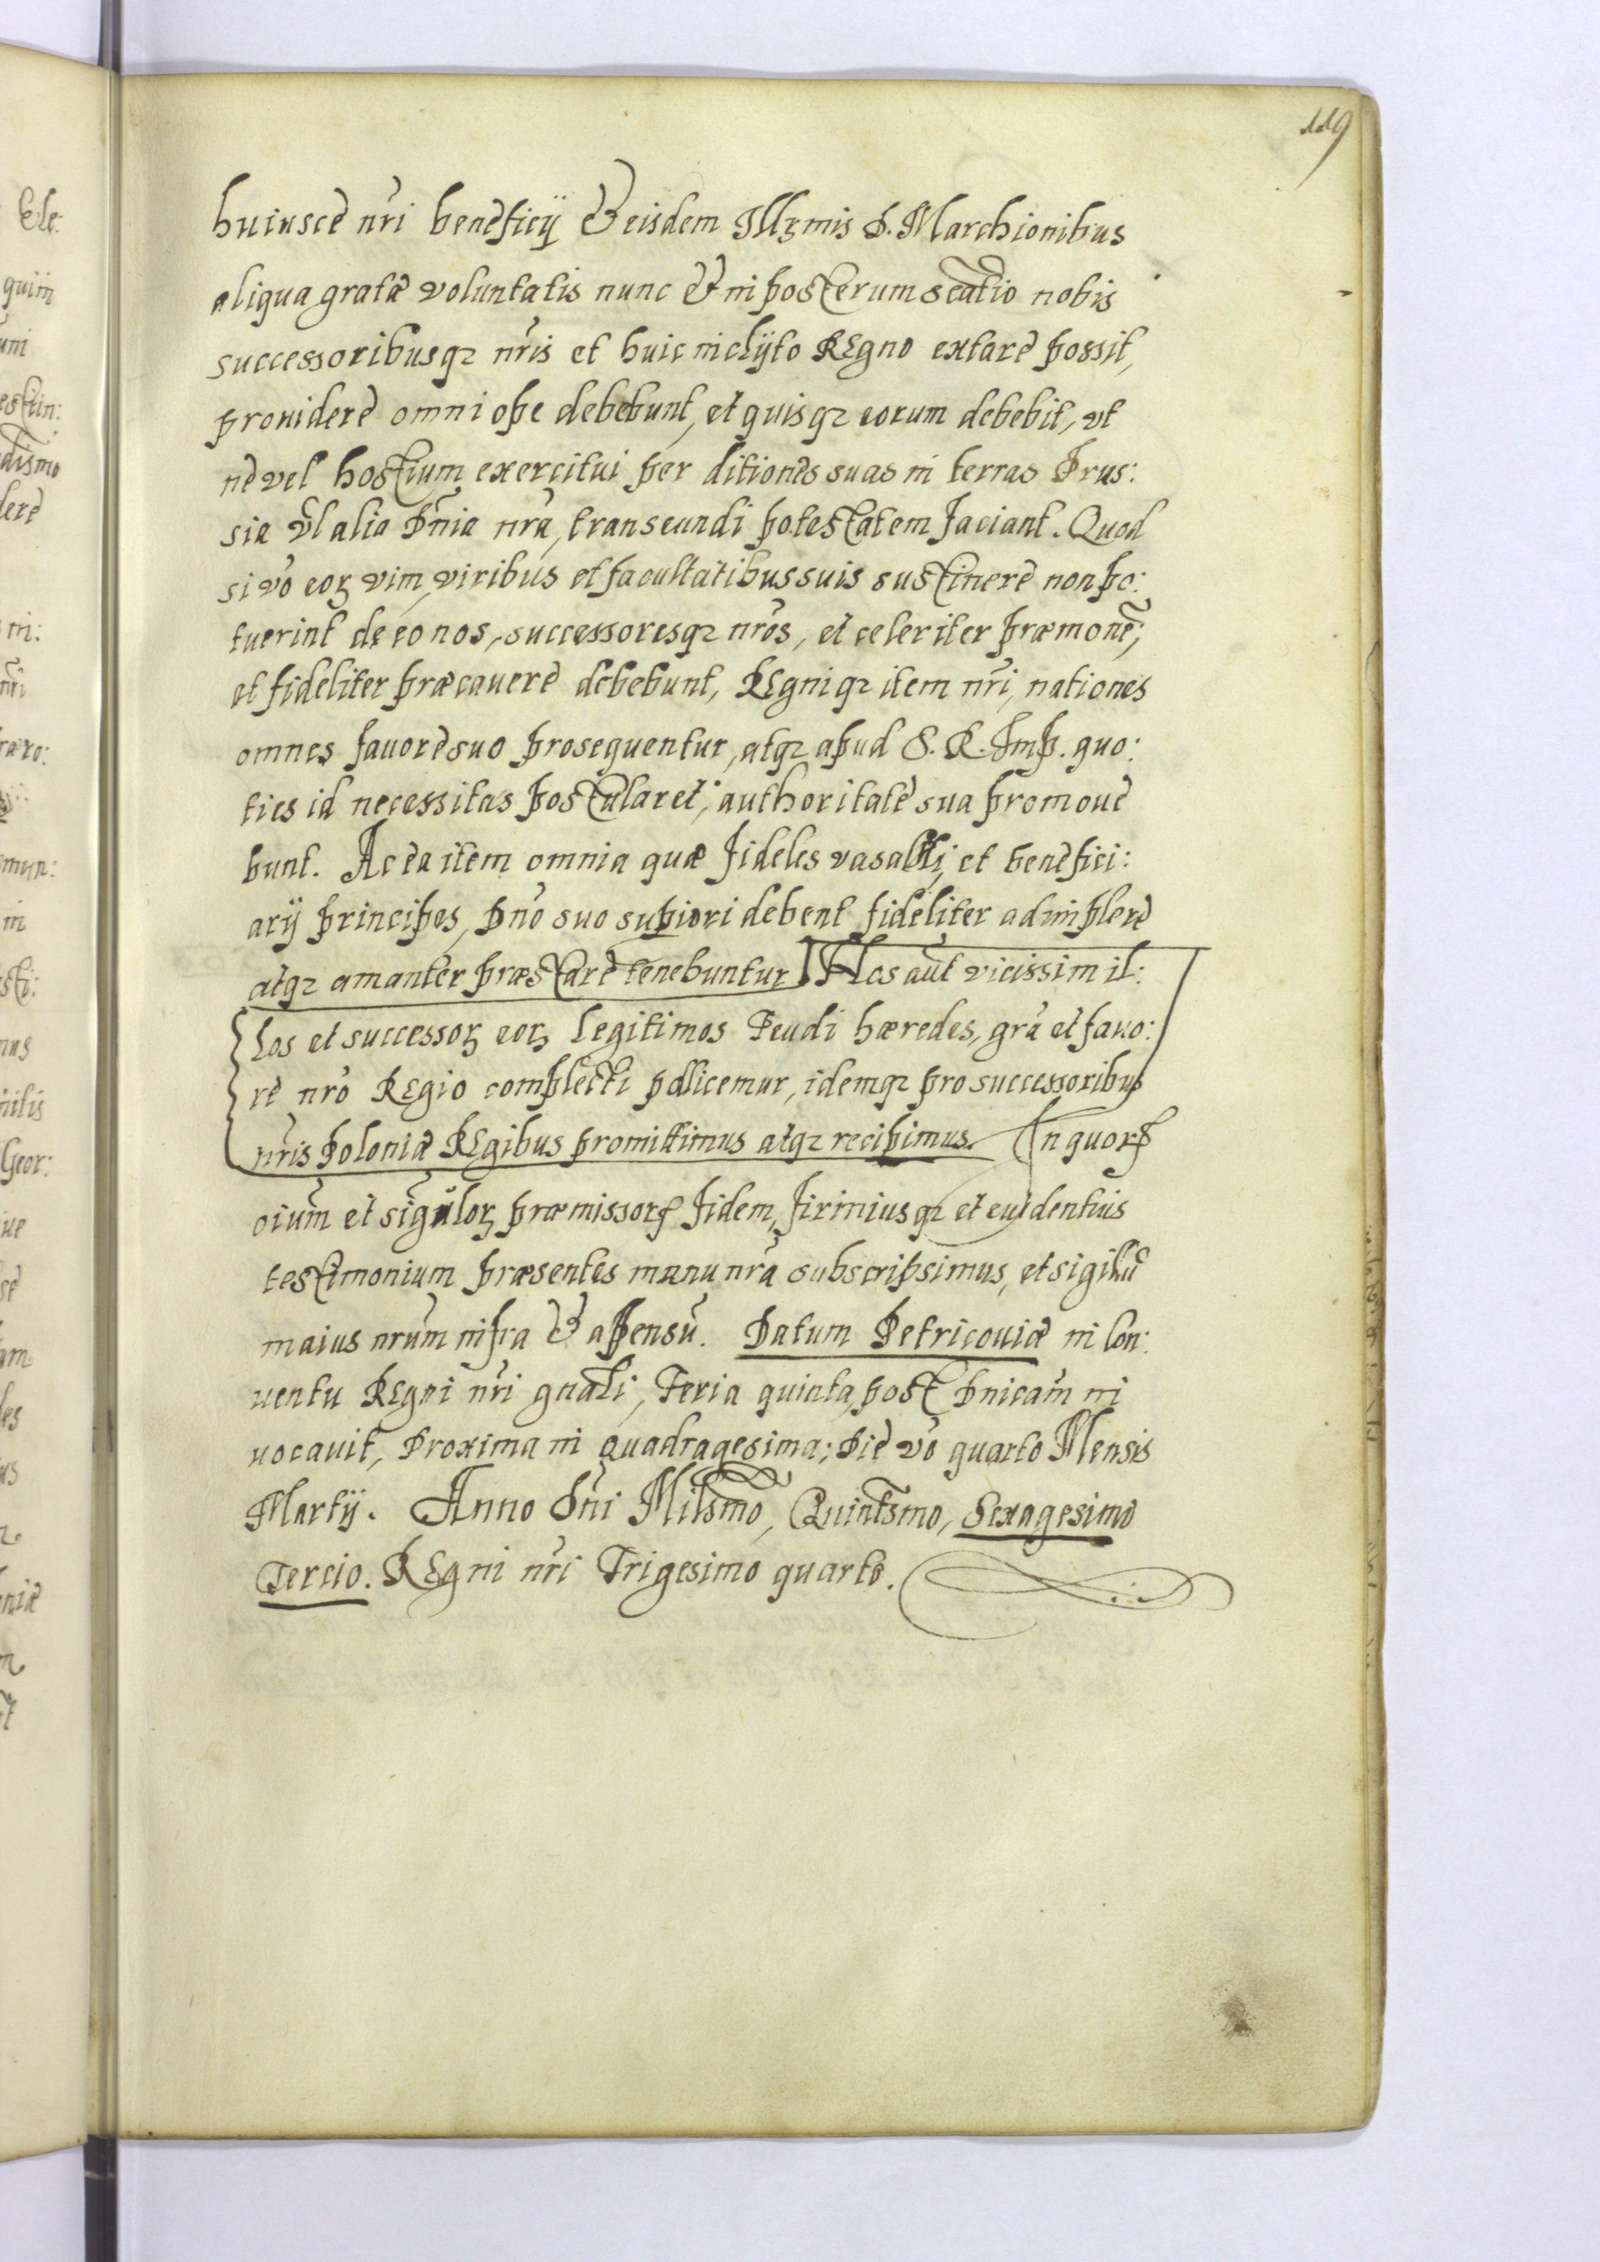 119
huiusce nr̃i beneficij & eisdem Illʒmis D. Marchionibus
aliqua gratæ voluntatis nunc & in posterum nobis
successoribusqꝫ nr̃is et huic inclÿto Regno extare possit,
prouidere omni ope debebunt, et quisqꝫ eorum debebit, vt
ne vel hostium exercitui per ditiones suas in terras Prus:
sia vl̃ alia Dñia nr̃a, transeundi potestatem faciant. Quod
si vo eoꝝ vim, viribus et facultatibus suis sustinere non po:
tuerint de eo nos, successoresqꝫ nr̃os, et celeriter præmone;
et fideliter præcauere debebunt, Regniqꝫ item nr̃i, nationes
omnes fauore suo prosequentur, atqꝫ apud S. R. Imp. quo:
ties id necessitas postularet; authoritate sua promoue
bunt. Ac ea item omnia quæ fideles vasalli, et benefici:
arij principes, Dño suo supiori debent fideliter adimplere
atqꝫ amanter præstare tenebuntur Nos aut̃ vicissim il:
los et successoꝝ eoꝝ legitimos Feudi hæredes, gr̃a et fauo:
re nr̃o Regio complecti pollicemur, idemqꝫ pro successoribus
nr̃is Poloniæ Regibus promittimus atqꝫ recipimus. In quorꝫ
oium̃ et singuloꝝ præmissorꝫ fidem, firmiusqꝫ et euidentius
testimonium præsentes manu nr̃a subscripsimus, et sigillũ
maius nr̃um infra & apensũ. Datum Petricouiæ in Con:
uentu Regni nr̃i gnãli, Feria quinta, post Dnicam̃ in
uocauit, Proxima in Quadragesima; Die vo quarto Mensis
Martij. Anno Dñi Milsmo, Quintsmo, Sexagesimo
Tercio. Regni nr̃i Trigesimo quarto.